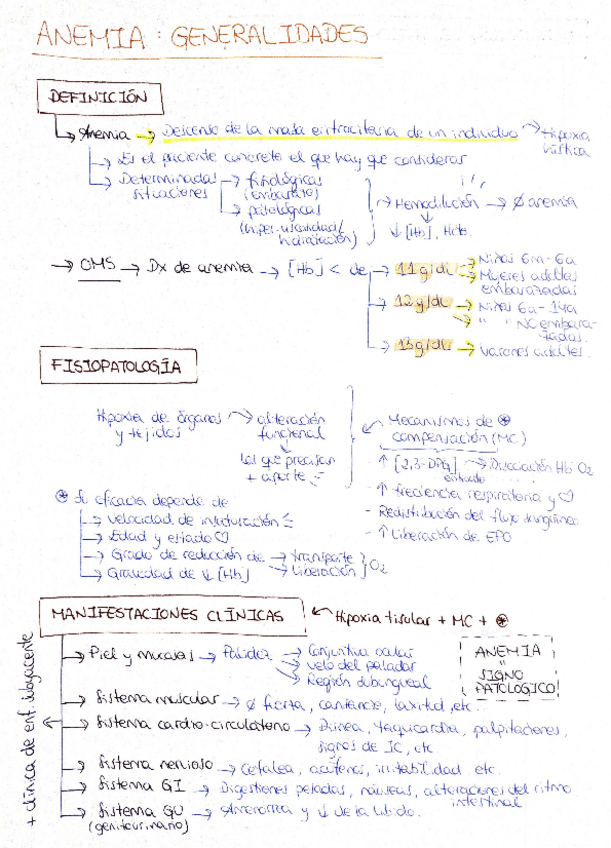 ANEMIA: GENERALIDADES
DEFINICIÓN
Anemia → Descenso de la masa eritrocitaria de un individuo → Hipoxia
tisular
→ Es el paciente concreto el que hay que considerar
→ Determinadas situaciones → fisiológicas
(embarazo)
→ patológicas
(hiper-viscosidad/
hidratación)
→ Hemodilución → Ø anemia
↓ [Hb], Hcto.
→ OMS → Dx de anemia → [Hb] < de → 11 g/dl → Niños 6m-6a
→ Mujeres adultas
embarazadas
→ 12 g/dl → Niños 6a-14a
→ " " NO embara-
zadas.
→ 13 g/dl → Varones adultos.
FISIOPATOLOGÍA
Hipoxia de órganos y tejidos → alteración
funcional
los que precisan
+ aporte
Mecanismos de ⊛
compensación (MC)
- ↑ [2,3-DPG] → Disociación Hb-O2
- ↑ frecuencia respiratoria y ♡
- Redistribución del flujo sanguíneo
- ↑ Liberación de EPO
⊛ Su eficacia depende de
→ Velocidad de instauración
→ Edad y estado ♡
→ Grado de reducción de → transporte
→ liberación } O2
→ Gravedad de ↓ [Hb]
MANIFESTACIONES CLÍNICAS ← Hipoxia tisular + MC + ⊛
ANEMIA
"
SIGNO
PATOLOGICO!
+ clínica de enf. subyacente
→ Piel y mucosas → Palidez → Conjuntiva ocular
→ Velo del paladar
→ Región subungueal
→ Sistema muscular → Ø fuerza, cansancio, laxitud, etc.
→ Sistema cardio-circulatorio → Disnea, taquicardia, palpitaciones,
signos de IC, etc
→ Sistema nervioso → Cefalea, acúfenos, irritabilidad etc.
→ Sistema GI → Digestiones pesadas, náuseas, alteraciones del ritmo
intestinal
→ Sistema GU → Amenorrea y ↓ de la libido.
(genitourinario)